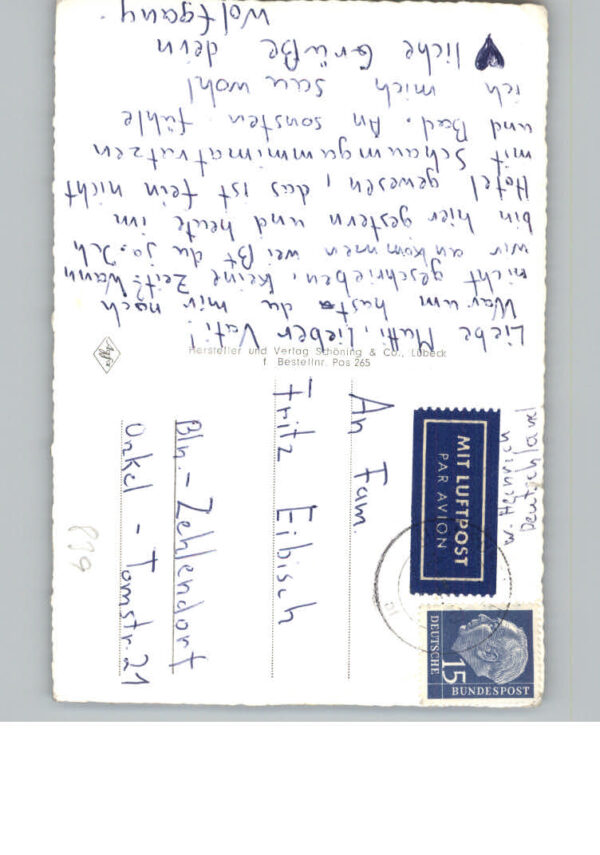 Liebe Mutti, Lieber Vati!
Warum hast du mir noch
nicht geschrieben, keine Zeit? Wann
wir ankommen weißt du ja. Ich
bin hier gestern und heute im
Hotel gewesen, das ist fein nicht
mit Schaumgummimatratzen
und Bad. An sonsten fühle
ich mich sau wohl
liche Grüße dein
Wolfgang.
Hersteller und Verlag Schöning & Co., Lübeck
f. Bestellnr. Pos 265
Agfa
W. Heinrich
Deutschland
MIT LUFTPOST
PAR AVION
DEUTSCHE
BUNDESPOST
15
An Fam.
Fritz Eibisch
Bln.-Zehlendorf
Onkel-Tomstr. 21
899